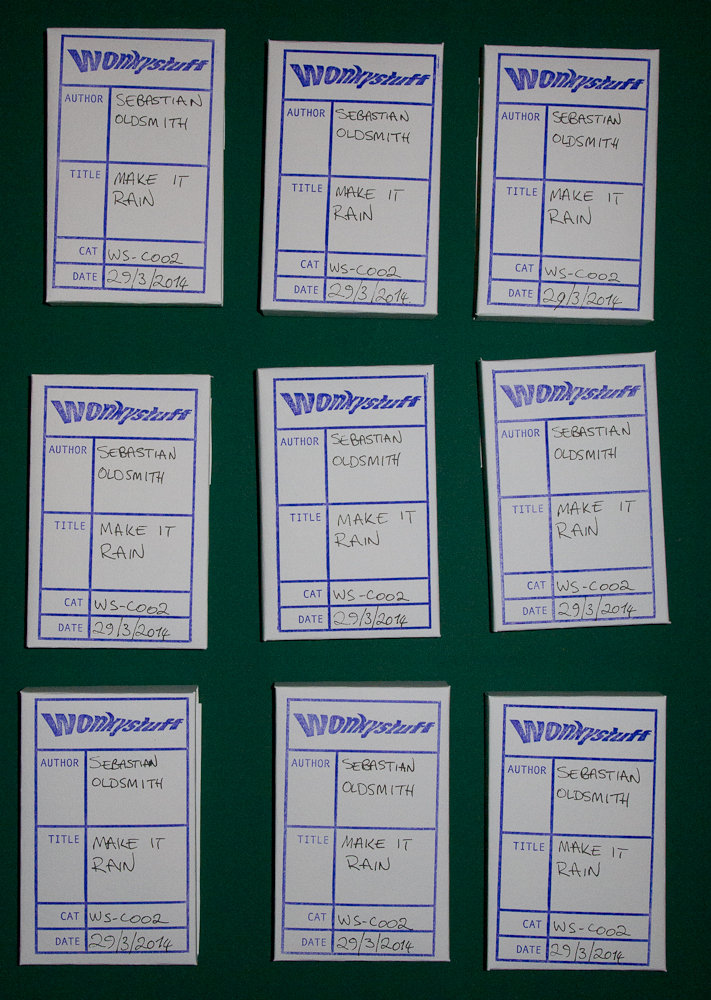 Wonkystuff
AUTHOR SEBASTIAN
OLDSMITH
TITLE MAKE IT
RAIN
CAT WS-C002
DATE 29/3/2014
Wonkystuff
AUTHOR SEBASTIAN
OLDSMITH
TITLE MAKE IT
RAIN
CAT WS-C002
DATE 29/3/2014.
Wonkystuff
AUTHOR SEBASTIAN
OLDSMITH
TITLE MAKE IT
RAIN
CAT WS-C002
DATE 29/3/2014
Wonkystuff
AUTHOR SEBASTIAN
OLDSMITH
TITLE MAKE IT
RAIN
CAT WS-C002
DATE 29/3/2014
Wonkystuff
AUTHOR SEBASTIAN
OLDSMITH
TITLE MAKE IT
RAIN
CAT WS-C002
DATE 29/3/2014
Wonkystuff
AUTHOR SEBASTIAN
OLDSMITH
TITLE MAKE IT
RAIN
CAT WS-C002
DATE 29/3/2014
Wonkystuff
AUTHOR SEBASTIAN
OLDSMITH
TITLE MAKE IT
RAIN
CAT WS-C002
DATE 29/3/2014
Wonkystuff
AUTHOR SEBASTIAN
OLDSMITH
TITLE MAKE IT
RAIN
CAT WS-C002
DATE 29/3/2014
Wonkystuff
AUTHOR SEBASTIAN
OLDSMITH
TITLE MAKE IT
RAIN
CAT WS-C002
DATE 29/3/2014